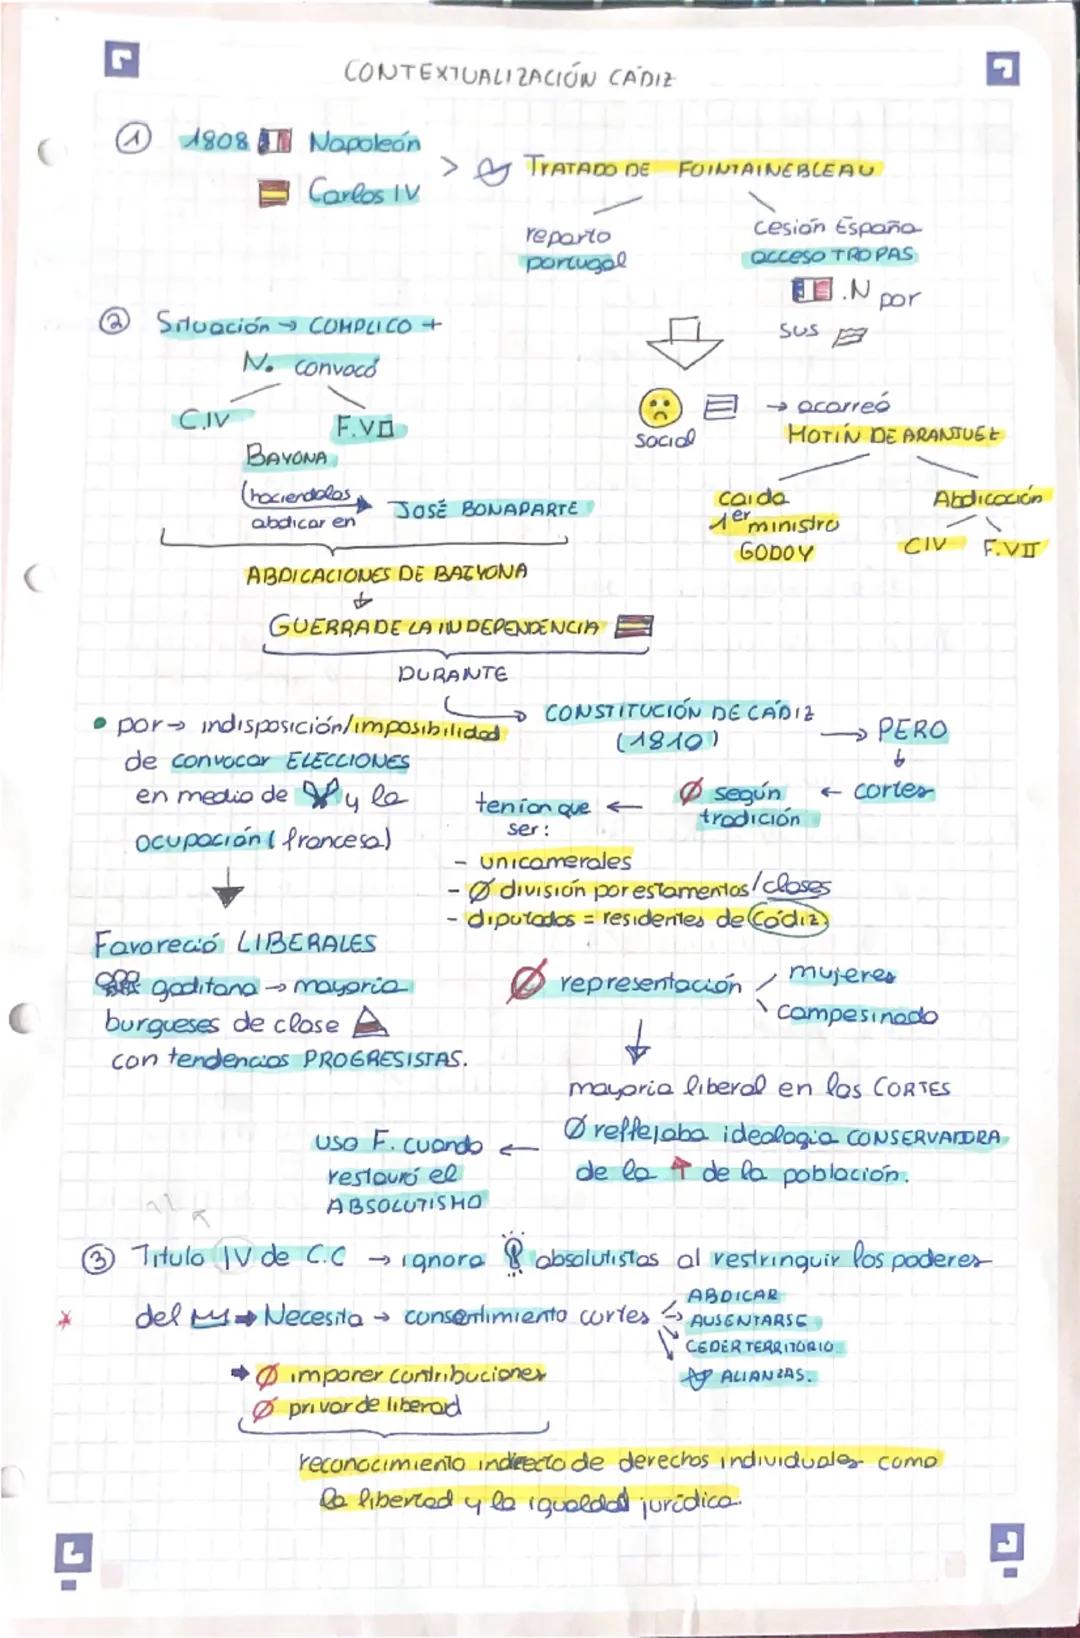 CONTEXTUALIZACIÓN CÁDIZ
① 1808 Napoleón
Carlos IV
> TRATADO DE FOINTAINEBLEAU
reparto
portugal
cesión España
acceso TROPAS
.N por
sus
② Situación → COMPLICO +
N. convocó
C.IV
F.VII
BAYONA
(haciendolos
abdicar en
JOSÉ BONAPARTE
social
→ acarreó
MOTÍN DE ARANJUEZ
caída
1er ministro
GODOY
Abdicación
CIV F.VII
ABDICACIONES DE BAYONA
GUERRA DE LA INDEPENDENCIA
DURANTE
CONSTITUCIÓN DE CÁDIZ
(1810)
→ PERO
← cortes
Ø según
tradición
tenían que ←
ser:
- unicamerales
- Ø división por estamentos/clases
- diputados = residentes de Cádiz
• por → indisposición/imposibilidad
de convocar ELECCIONES
en medio de y la
ocupación (francesa)
Favoreció LIBERALES
gaditana → mayoría
burgueses de clase
con tendencias PROGRESISTAS.
Ø representación
mujeres
campesinado
mayoría liberal en las CORTES
Ø reflejaba ideología CONSERVADORA
de la ↑ de la población.
uso F. cuando ←
restauró el
ABSOLUTISMO
③ Título IV de C.C → ignora absolutistas al restringuir los poderes
* del ⇒ Necesita → consentimiento cortes
ABDICAR
AUSENTARSE
CEDER TERRITORIO
ALIANZAS.
➡ Ø imponer contribuciones
Ø privar de liberad
reconocimiento indirecto de derechos individuales como
la libertad y la igualdad jurídica.